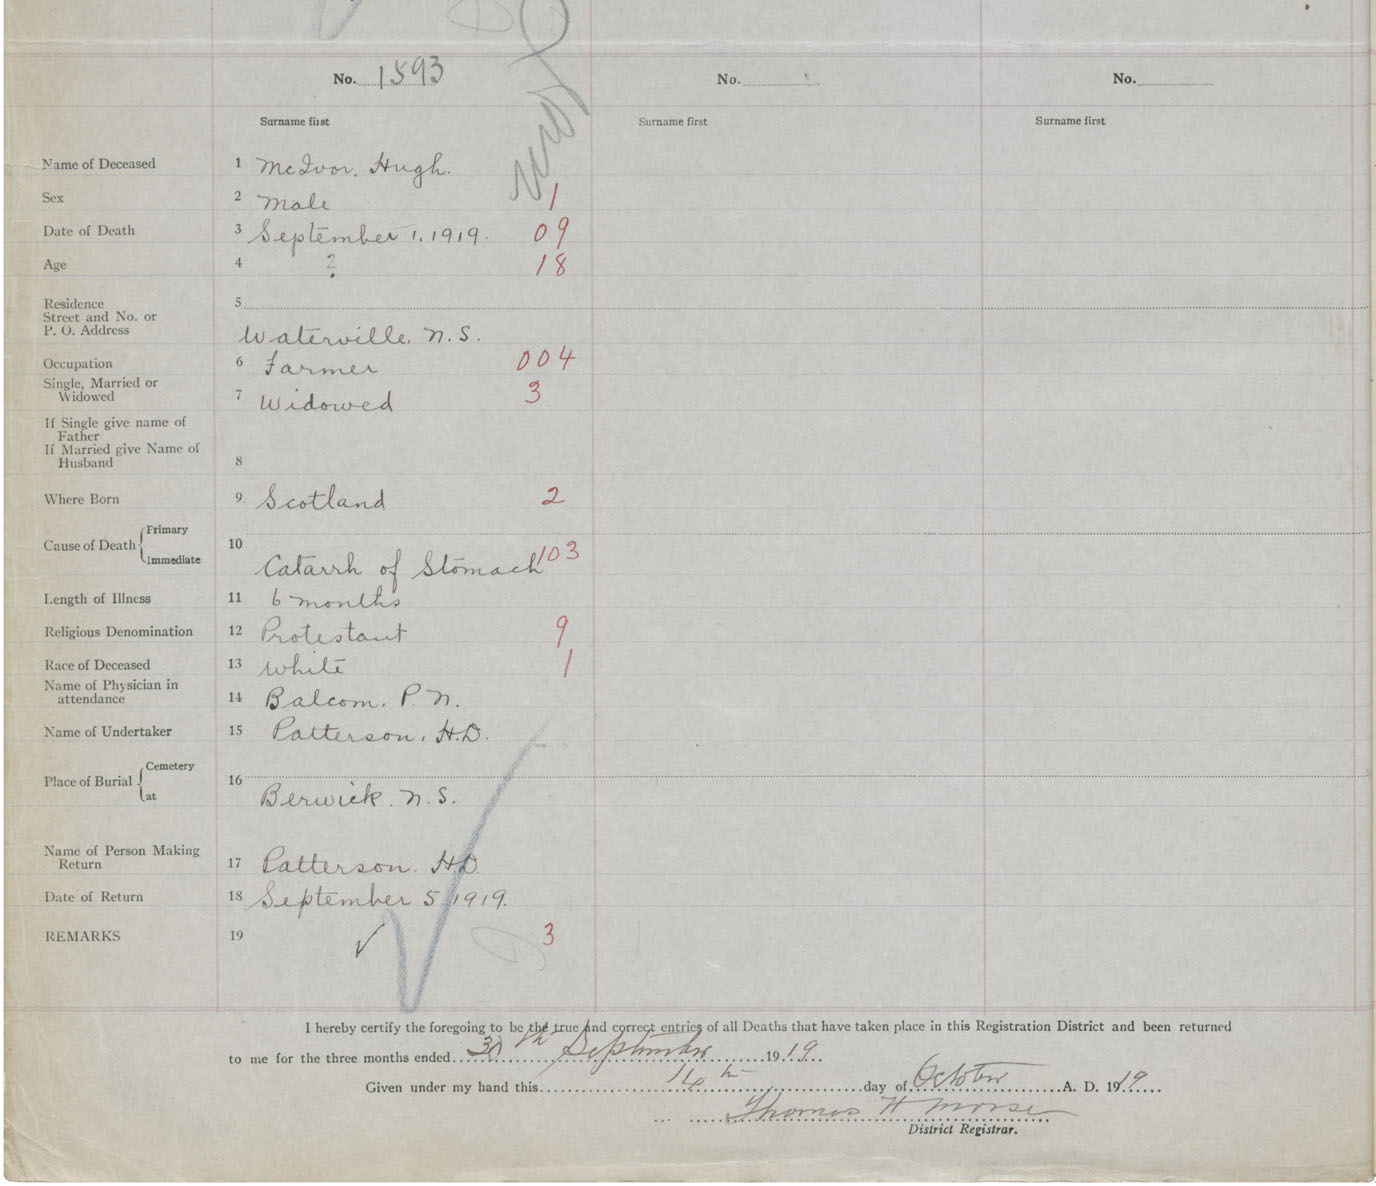 No. 1593 No. No.
Surname first Surname first Surname first
Name of Deceased 1 McIvor, Hugh.
Sex 2 Male 1
Date of Death 3 September 1, 1919. 09
Age 4 ? 18
Residence 5
Street and No. or
P. O. Address Waterville, N.S.
Occupation 6 Farmer 004
Single, Married or
Widowed 7 Widowed 3
If Single give name of
Father
If Married give Name of
Husband 8
Where Born 9 Scotland 2
Cause of Death { Primary
Immediate 10 Catarrh of Stomach 103
Length of Illness 11 6 months
Religious Denomination 12 Protestant 9
Race of Deceased 13 White 1
Name of Physician in
attendance 14 Balcom, P. N.
Name of Undertaker 15 Patterson, H.D.
Place of Burial { Cemetery
at 16 Berwick, N.S.
Name of Person Making
Return 17 Patterson, H.D.
Date of Return 18 September 5, 1919.
REMARKS 19 ✓ 3
I hereby certify the foregoing to be the true and correct entries of all Deaths that have taken place in this Registration District and been returned
to me for the three months ended 30th September 1919
Given under my hand this 14th day of October A. D. 1919
Thomas H Morse
District Registrar.